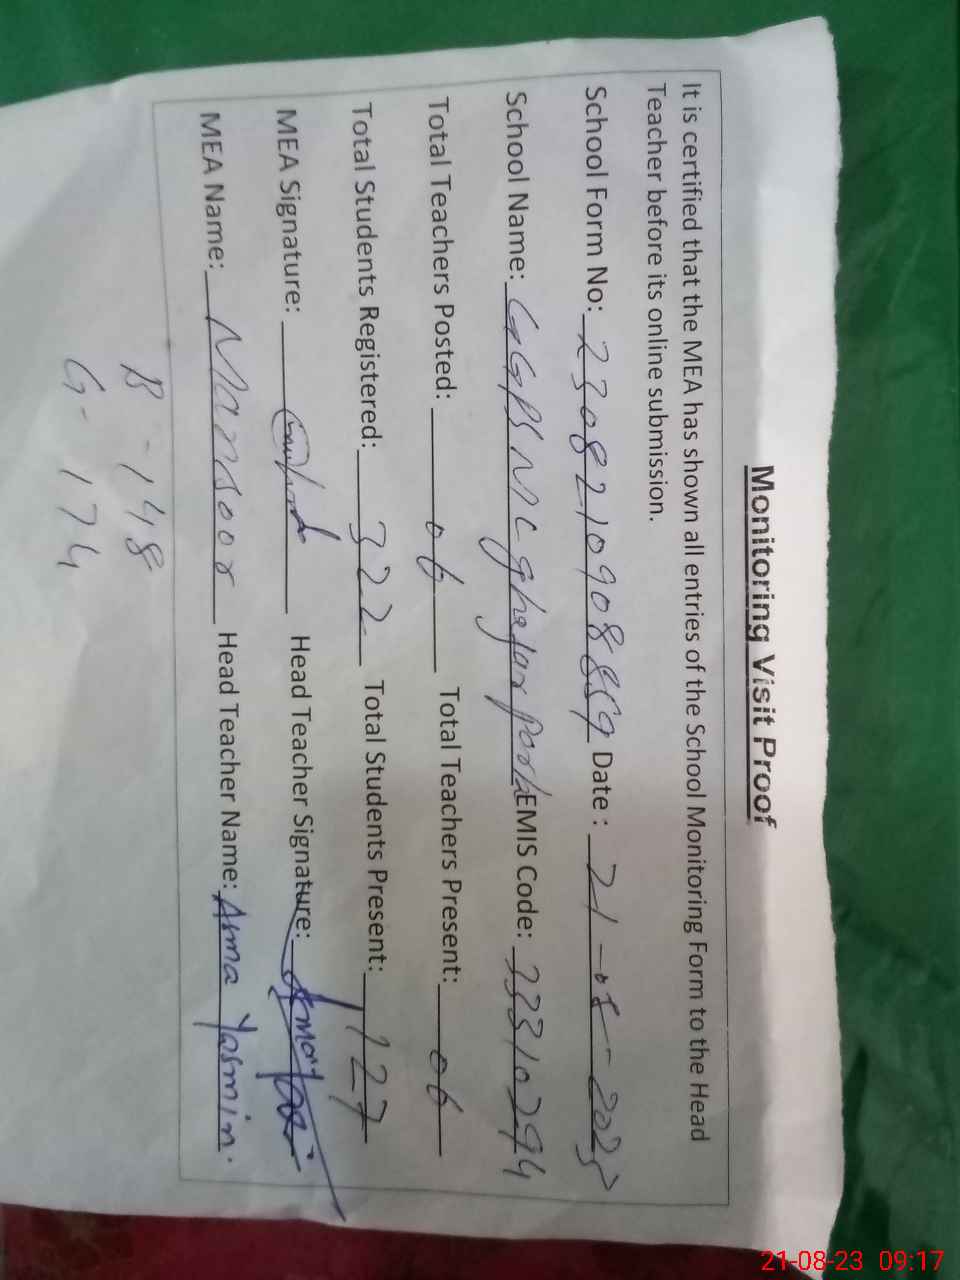 Monitoring Visit Proof
It is certified that the MEA has shown all entries of the School Monitoring Form to the Head
Teacher before its online submission.
School Form No: 230821090889 Date : 21-08-2023
School Name: GGPS MC ghafar Park EMIS Code: 33310294
Total Teachers Posted: 06 Total Teachers Present: 06
Total Students Registered: 322 Total Students Present: 127
MEA Signature: Head Teacher Signature:
MEA Name: Mansoor Head Teacher Name: Asma Yasmin.
B - 148
G - 174
21-08-23 09:17